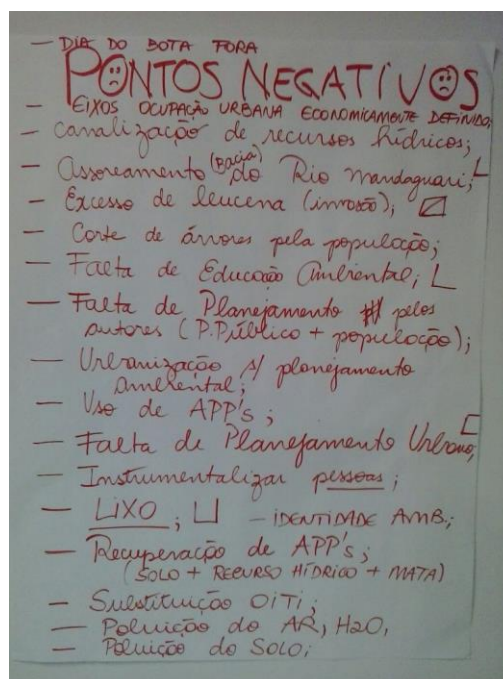 — DIA DO BOTA FORA
PONTOS NEGATIVOS
— EIXOS OCUPAÇÃO URBANA ECONOMICAMENTE DEFINIDO;
— Canalização de recursos hídricos;
— Assoreamento (Bacia) do Rio Mandaguari;
— Excesso de leucena (invasão);
— Corte de árvores pela população;
— Falta de Educação Ambiental;
— Falta de Planejamento pelos
autores (P.Público + população);
— Urbanização s/ planejamento
ambiental;
— Uso de APP's;
— Falta de Planejamento Urbano;
— Instrumentalizar pessoas;
— LIXO; — IDENTIDADE AMB;
— Recuperação de APP's;
(SOLO + RECURSO HÍDRICO + MATA)
— Substituição OiTi;
— Poluição do AR, H2O,
— Poluição do Solo;